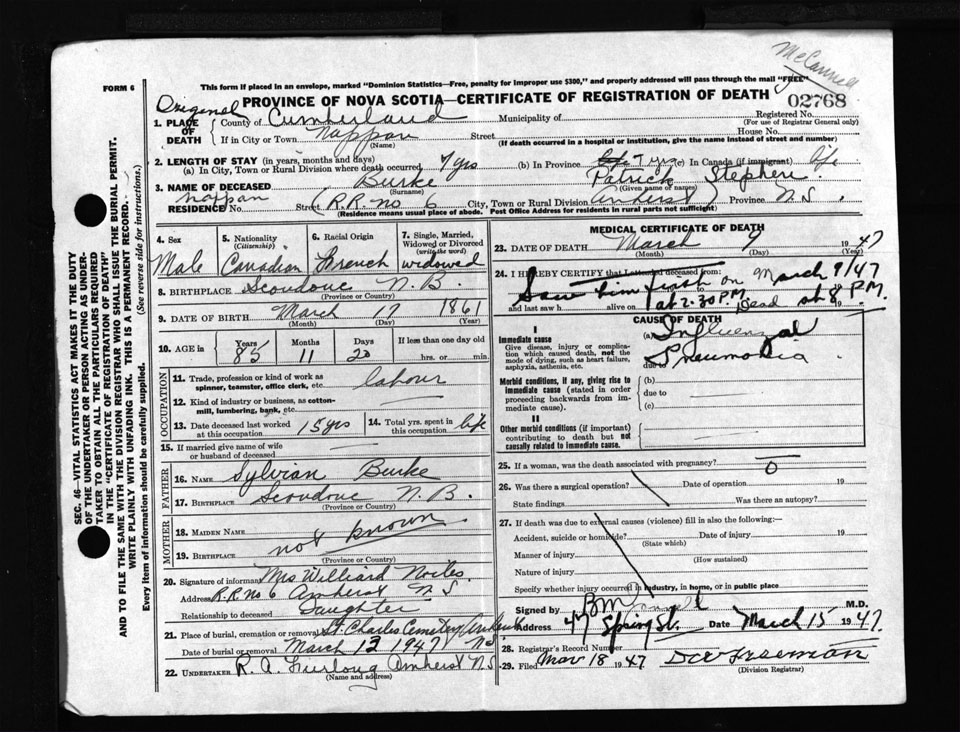 McCannell
FORM 6
This form if placed in an envelope, marked "Dominion Statistics—Free, penalty for improper use $300," and properly addressed will pass through the mail "FREE"
PROVINCE OF NOVA SCOTIA—CERTIFICATE OF REGISTRATION OF DEATH
02768
Original
1. PLACE OF DEATH { County of Cumberland Municipality of Registered No.
(For use of Registrar General only)
If in City or Town Nappan Street House No.
(Name) (If death occurred in a hospital or institution, give the name instead of street and number)
2. LENGTH OF STAY (in years, months and days)
(a) In City, Town or Rural Division where death occurred 7 yrs (b) In Province 7 yrs (c) In Canada (if immigrant) life
3. NAME OF DECEASED Burke Patrick Stephen
(Surname) (Given name or names)
Nappan
RESIDENCE No. Street R.R. no 6 City, Town or Rural Division Amherst Province N.S.
(Residence means usual place of abode. Post Office Address for residents in rural parts not sufficient)
4. Sex Male
5. Nationality (Citizenship) Canadian
6. Racial Origin French
7. Single, Married, Widowed or Divorced (write the word) widowed
8. BIRTHPLACE Scoudouc N.B.
(Province or Country)
9. DATE OF BIRTH March 17 1861
(Month) (Day) (Year)
10. AGE in Years 85 Months 11 Days 20 If less than one day old hrs. or min.
OCCUPATION
11. Trade, profession or kind of work as spinner, teamster, office clerk, etc. labour
12. Kind of industry or business, as cotton-mill, lumbering, bank, etc.
13. Date deceased last worked at this occupation 15 yrs
14. Total yrs. spent in this occupation life
15. If married give name of wife or husband of deceased
FATHER
16. NAME Sylvian Burke
17. BIRTHPLACE Scoudouc N.B.
(Province or Country)
MOTHER
18. MAIDEN NAME
not known
19. BIRTHPLACE
(Province or Country)
20. Signature of informant Mrs Williard Noiles
Address R.R. no 6 Amherst N S
Relationship to deceased Daughter
21. Place of burial, cremation or removal St. Charles Cemetery Amherst
Date of burial or removal March 12 1947 NS
22. UNDERTAKER R. A. Furlong Amherst N.S.
(Name and address)
MEDICAL CERTIFICATE OF DEATH
23. DATE OF DEATH March 9 1947
(Month) (Day)
24. I HEREBY CERTIFY that I attended deceased from:
Saw him first on March 9/47
and last saw h alive on at 2.30 P.M. Dead at 8 P.M.
CAUSE OF DEATH
I
Immediate cause
Give disease, injury or complication which caused death, not the mode of dying, such as heart failure, asphyxia, asthenia, etc.
(a) Influenzal
due to Pneumonia
Morbid conditions, if any, giving rise to immediate cause (stated in order proceeding backwards from immediate cause).
(b)
due to
(c)
II
Other morbid conditions (if important) contributing to death but not causally related to immediate cause.
25. If a woman, was the death associated with pregnancy? 0
26. Was there a surgical operation? Date of operation 19
State findings Was there an autopsy?
27. If death was due to external causes (violence) fill in also the following:—
Accident, suicide or homicide? Date of injury 19
(State which)
Manner of injury
(How sustained)
Nature of injury
Specify whether injury occurred in industry, in home, or in public place
Signed by M.D.
Address 47 Spring St. Date March 15 1947.
28. Registrar's Record Number
29. Filed Mar 18 1947 Freeman
(Division Registrar)
SEC. 46—VITAL STATISTICS ACT MAKES IT THE DUTY
OF THE UNDERTAKER OR PERSON ACTING AS UNDER-
TAKER TO OBTAIN ALL THE PARTICULARS REQUIRED
IN THE "CERTIFICATE OF REGISTRATION OF DEATH"
AND TO FILE THE SAME WITH THE DIVISION REGISTRAR WHO SHALL ISSUE THE BURIAL PERMIT.
WRITE PLAINLY WITH UNFADING INK. THIS IS A PERMANENT RECORD.
Every item of information should be carefully supplied. (See reverse side for instructions.)